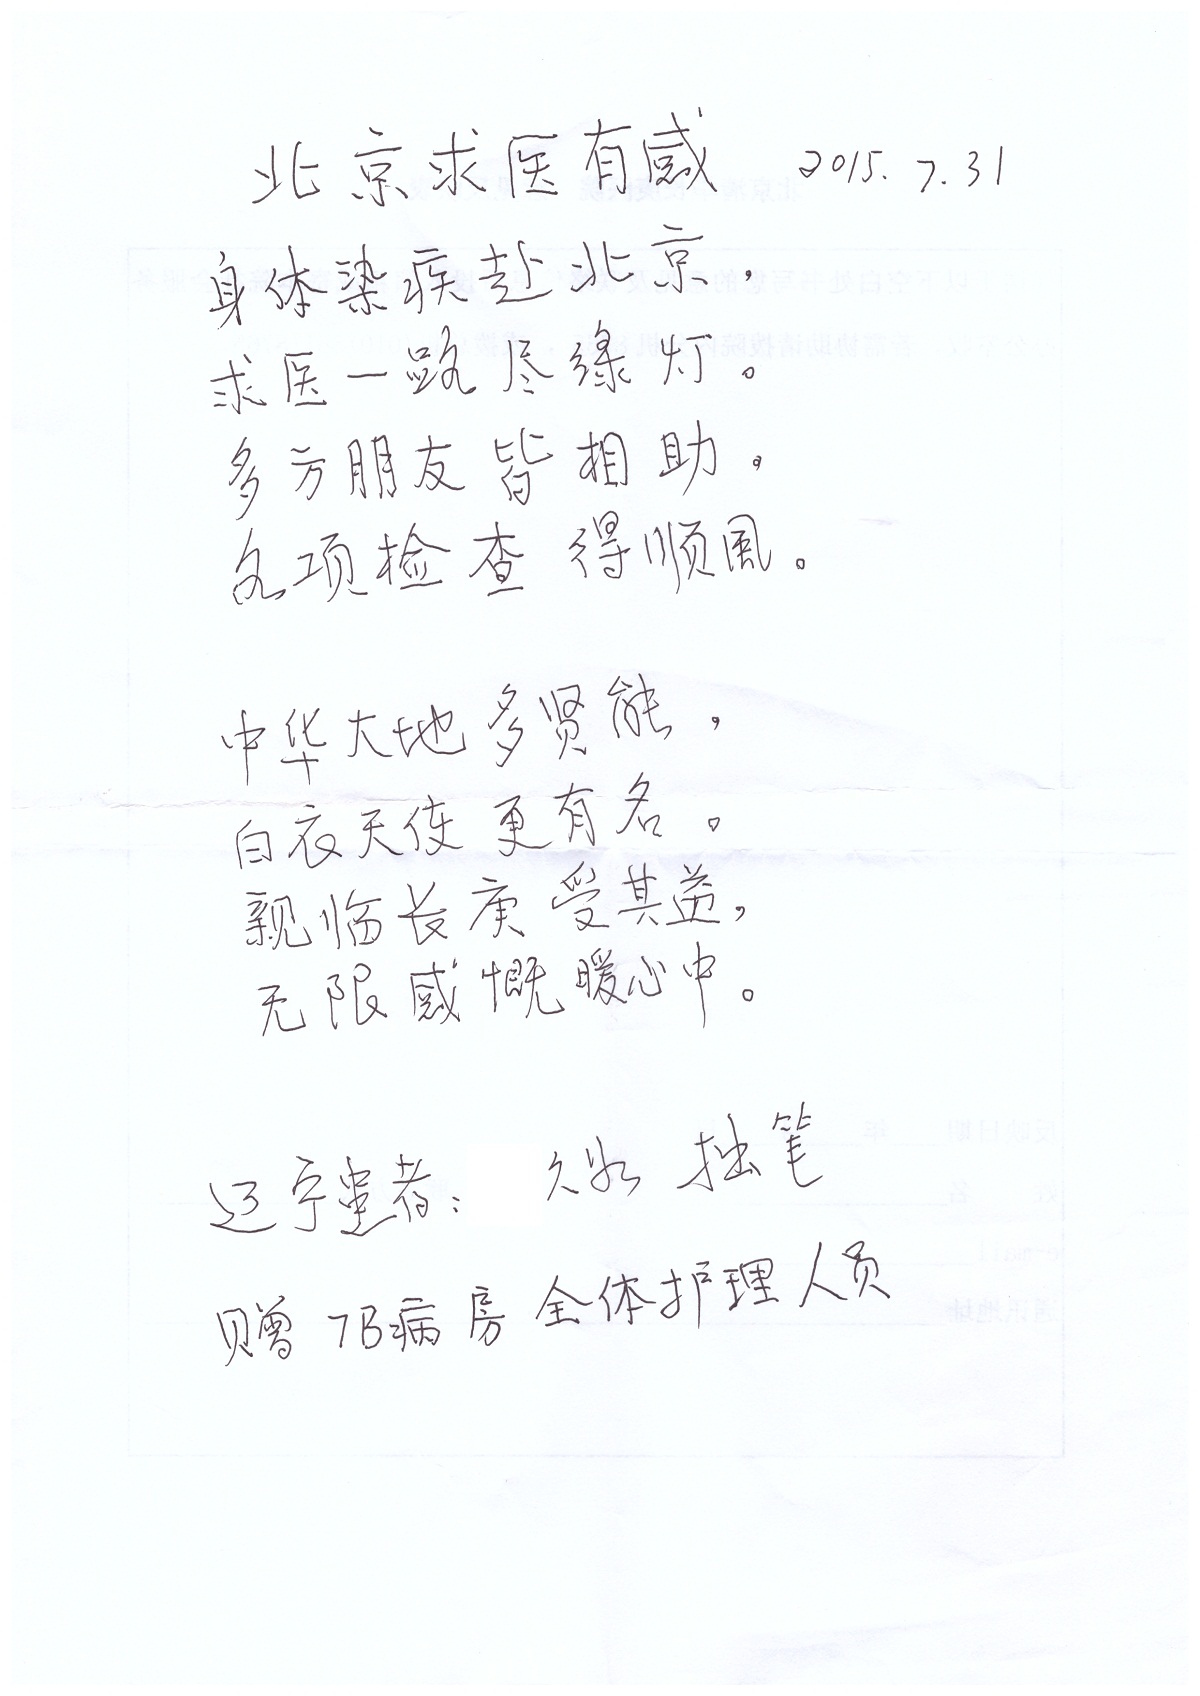 北京求医有感 2015.7.31
身体染疾赴北京，
求医一路尽绿灯。
多方朋友皆相助，
各项检查得顺风。
中华大地多贤能，
白衣天使更有名。
亲临长庚受其益，
无限感慨暖心中。
辽宁患者： 久冰 拙笔
赠 7B病房全体护理人员